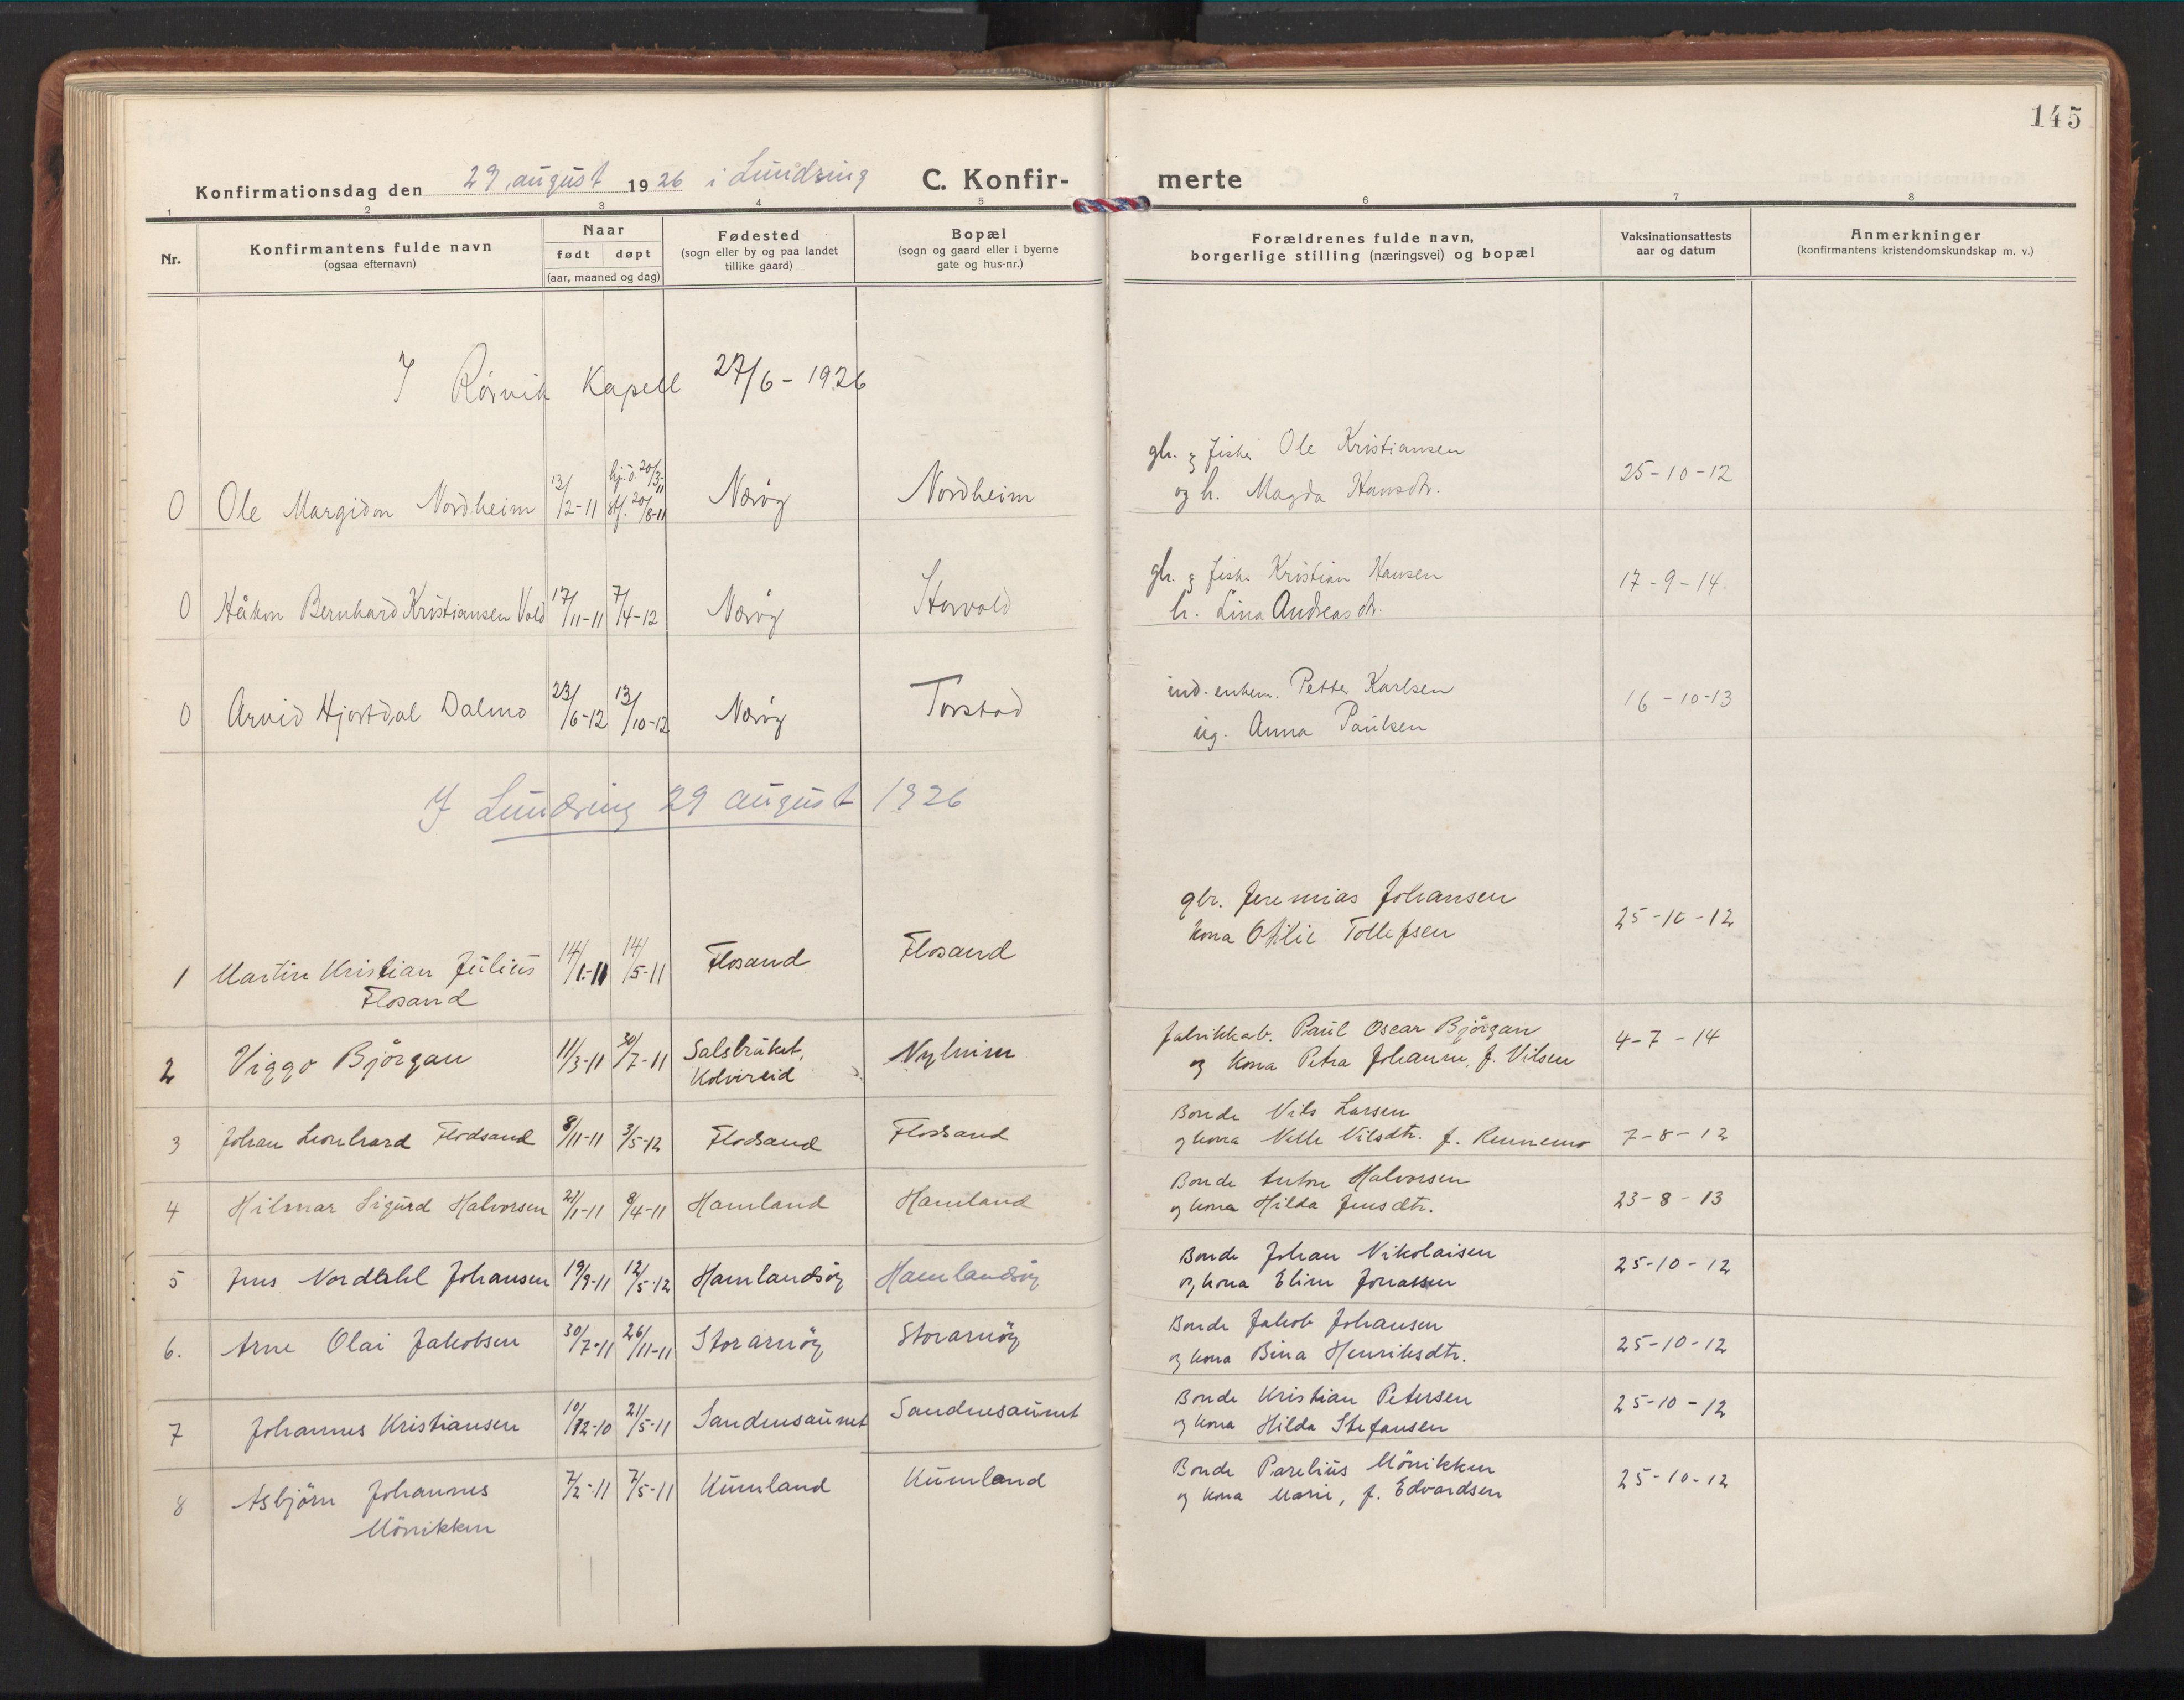 145
Konfirmationsdag den 29. august 1926 i Lundring C. Konfir- merte
1 2 3 4 5 6 7 8
Nr.
Konfirmantens fulde navn
(ogsaa efternavn)
Naar
født døpt
(aar, maaned og dag)
Fødested
(sogn eller by og paa landet
tillike gaard)
Bopæl
(sogn og gaard eller i byerne
gate og hus-nr.)
Forældrenes fulde navn,
borgerlige stilling (næringsvei) og bopæl
Vaksinationsattests
aar og datum
Anmerkninger
(konfirmantens kristendomskundskap m. v.)
I Rørvik Kapell 27/6 - 1926
0 Ole Margidon Nordheim 12/2-11 hj.d. 20/3-11 stf. 20/8-11 Nærøy Nordheim gbr. og fisker Ole Kristiansen 25-10-12
og h. Magda Hansdtr.
0 Håkon Bernhard Kristiansen Vold 17/11-11 7/4-12 Nærøy Storvold gbr. og fisker Kristian Hansen 17-9-14
h. Lina Andreasdtr.
0 Arvid Hjortdal Dalmo 23/6-12 13/10-12 Nærøy Torstad Petter Karlsen 16-10-13
ug. Anna Paulsen
I Lundring 29 august 1926
1 Martin Kristian Julius 14/1-11 14/5-11 Flosand Flosand gbr. Jeremias Johansen 25-10-12
Flosand
kona Otilie Tollefsen
2 Viggo Björgan 11/3-11 30/7-11 Salsbruket, Nyheim fabrikkarb. Paul Oscar Björgan 4-7-14
Kolvereid
og kona Petra Johanne, f. Nilsen
3 Johan Leonhard Flodsand 8/11-11 3/5-12 Flodsand Flodsand Bonde Nils Larsen 7-8-12
og kona Nelle Nilsdtr. f. Rennemo
4 Hilmar Sigurd Halvorsen 21/1-11 8/4-11 Hamland Hamland Bonde Anton Halvorsen 23-8-13
og kona Hilda Jensdtr.
5 Jens Nordahl Johansen 19/9-11 12/5-12 Hamlandsöy Hamlandsöy Bonde Johan Nikolaisen 25-10-12
og kona Eline Jonassen
6. Arne Olai Jakobsen 30/7-11 26/11-11 Storarnöy Storarnöy Bonde Jakob Johansen 25-10-12
og kona Bina Henriksdtr.
7 Johannes Kristiansen 10/12-10 21/5-11 Sandnesaunet Sandnesaunet Bonde Kristian Petersen 25-10-12
og kona Hilda Stefansen
8 Asbjörn Johannes 7/2-11 7/5-11 Kumland Kumland Bonde Parelius Mönikken 25-10-12
Mönikken
og kona Marie, f. Edvardsen